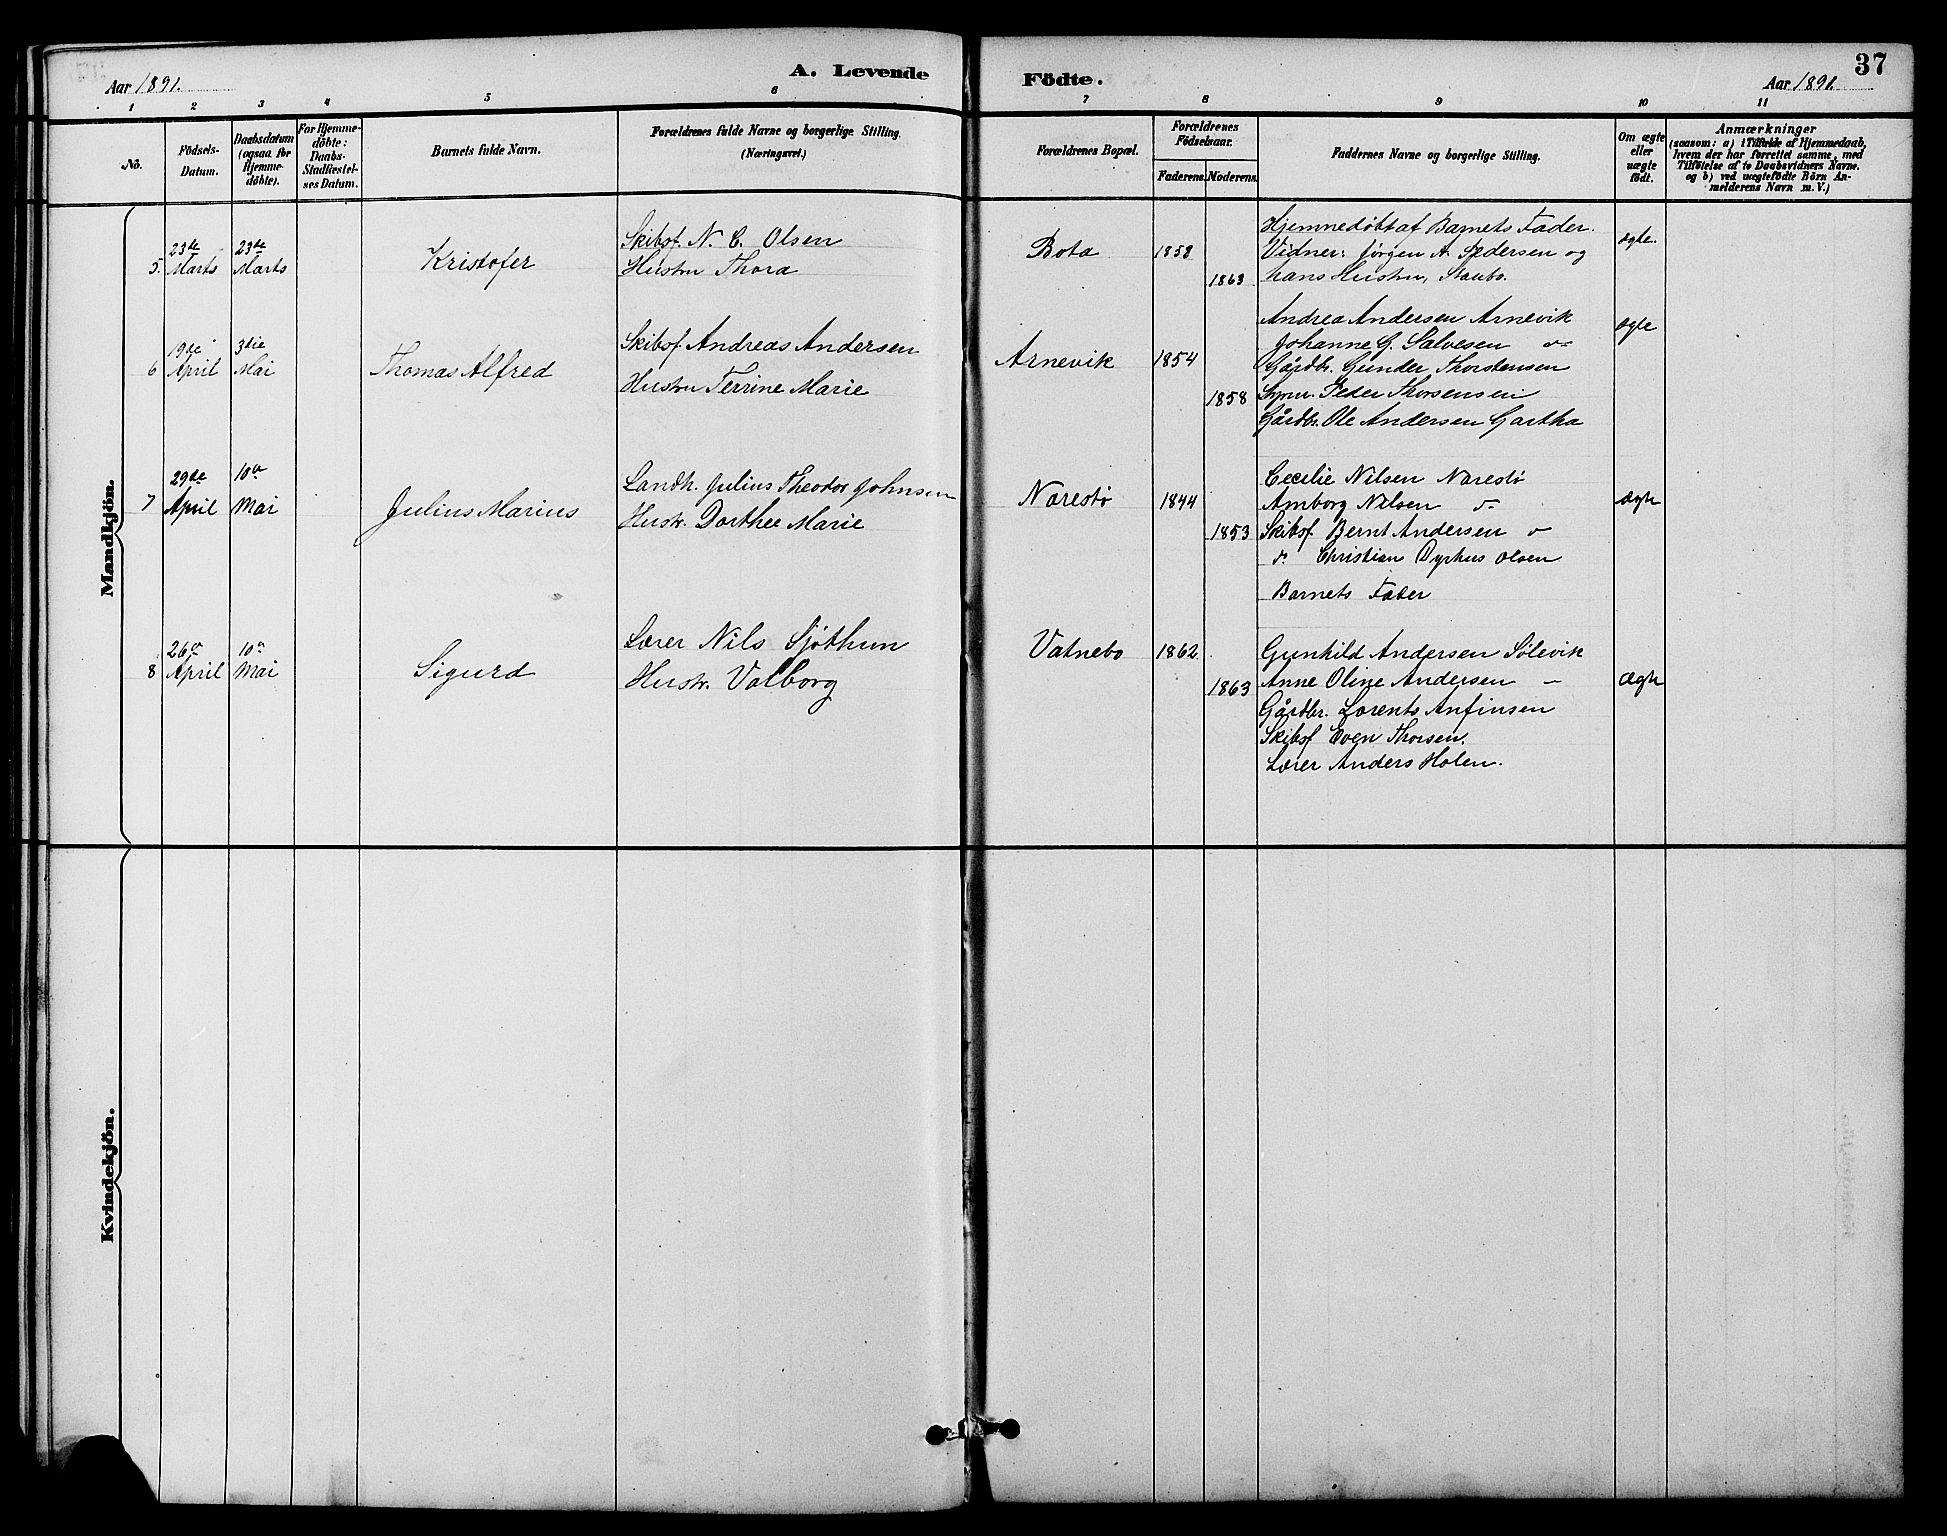 Aar 1891.
A. Levende
Födte.
37
Aar 1891.
1 2 3 4 5 6 7 8 9 10 11
No.
Födsels-
Datum.
Daabsdatum
(ogsaa for
Hjemme-
döbte).
For Hjemme-
döbte:
Daabs-
Stadfæstel-
ses Datum.
Barnets fulde Navn.
Forældrenes fulde Navne og borgerlige Stilling.
(Næringsvei.)
Forældrenes Bopæl.
Forældrenes
Födselsaar.
Faderens. Moderens.
Faddernes Navne og borgerlige Stilling.
Om ægte
eller
uægte
födt.
Anmærkninger
(saasom: a) i Tilfælde af Hjemmedaab,
hvem der har forrettet samme, med
Tilföielse af to Daabsvidners Navne.
og b) ved uægtefödte Börn An-
melderens Navn m. V.)
Mandkjön.
5. 23de Marts
23de Marts
Kristofer
Skibsf. N. C. Olsen
Hustru Thora
Bota
1858
1863
Hjemmedøbt af Barnets Fader.
Vidner: Jørgen A. Pedersen og
hans Hustru, Staubo.
ægte.
6 19de April
3die Mai
Thomas Alfred
Skibsf. Andreas Andersen
Hustru Terrine Marie
Arnevik
1854
1858
Andrea Andersen Arnevik
Johanne G. Salvesen
Gårdbr. Gunder Thorstensen
Peder Thorsensen
Gårdbr. Ole Andersen Gartha
ægte
7 29de April
10de Mai
Julius Marius
Landh. Julius Theodor Johnsen
Hustr. Dorthee Marie
Narestø
1844
1853
Cecilie Nilsen Narestø
Amborg Nilsen
Skibsf. Bernt Andersen
Christian Dyrhus Olsen
Barnets Fader
Ægte
8 26de April
10de Mai
Sigurd
Lærer Nils Sjøthun
Hustr. Valborg
Vatnebo
1862
1863
Gunhild Andersen Sølevik
Anne Oline Andersen –
Gårdbr. Lorents Anfinsen
Skibsf Even Thorsen.
Lærer Anders Holen.
Ægte
Kvindekjön.